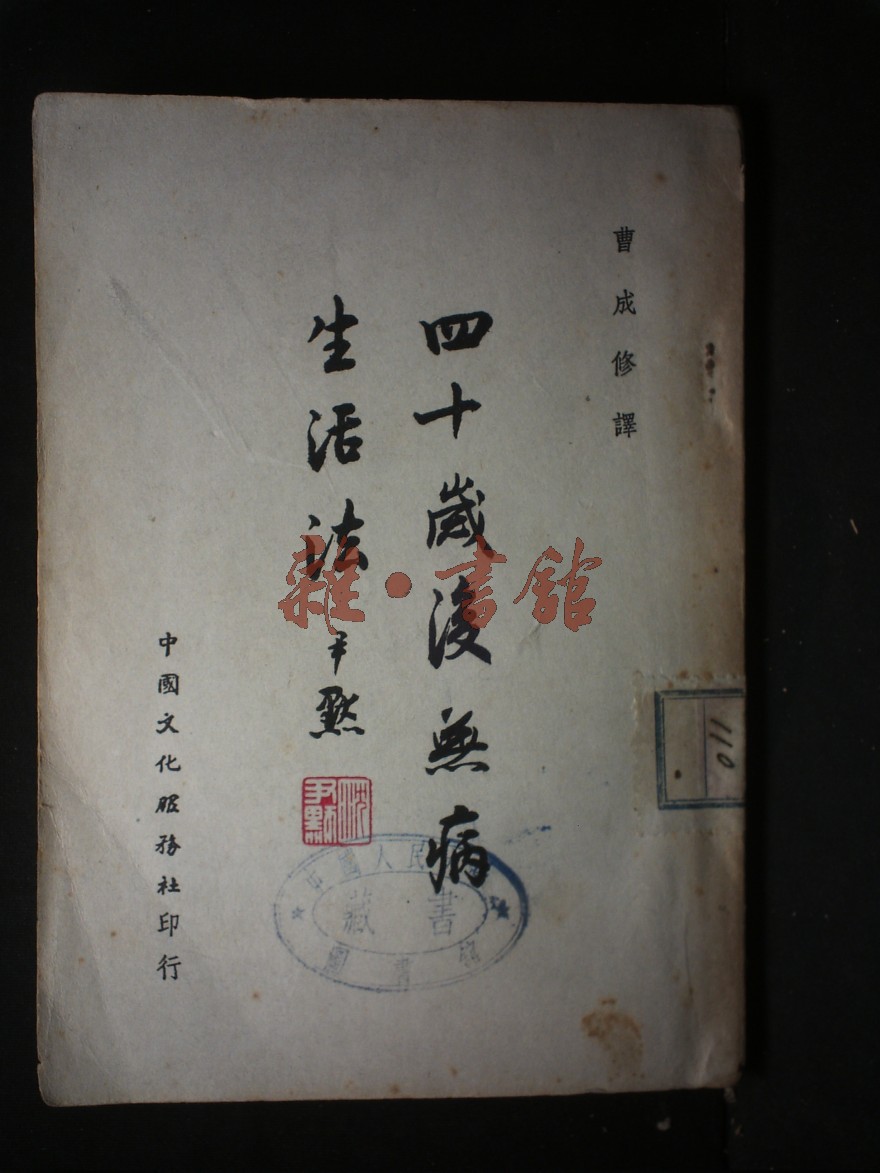 曹成修譯
四十歲後無病
生活法 尹默
沈尹默
中國文化服務社印行
雜·書館
中國人民
藏書
圖書館
110